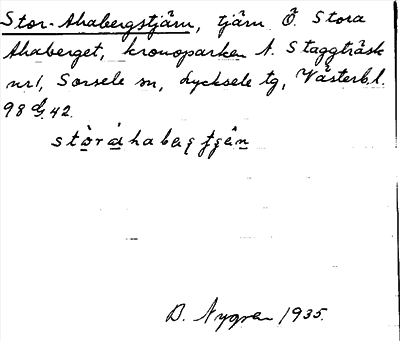 Stor-Ahabergstjärn, tjärn Ö. Stora
Ahaberget, kronoparken A. Staggträsk
nr 1, Sorsele sn, Lycksele tg, Västerb.l.
98 G. 42.
stòráhabaʂtjän
B. Nygren 1935.